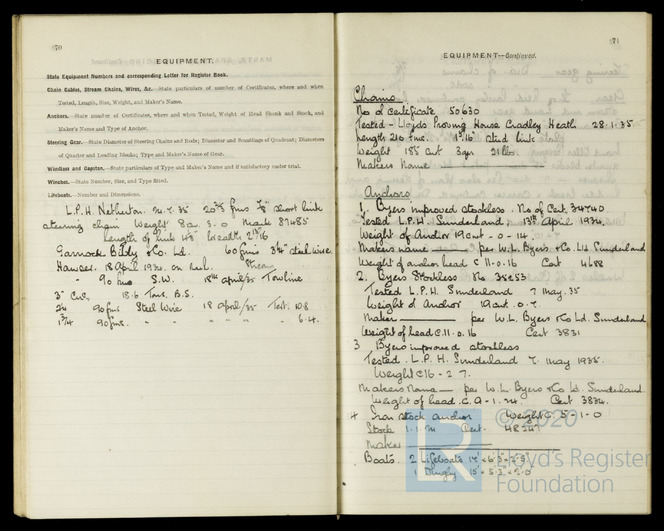 70
EQUIPMENT.
State Equipment Numbers and corresponding Letter for Register Book.
Chain Cables, Stream Chains, Wires, &c.—State particulars of number of Certificates, where and when
Tested, Length, Size, Weight, and Maker's Name.
Anchors.—State number of Certificates, where and when Tested, Weight of Head Shank and Stock, and
Maker's Name and Type of Anchor.
Steering Gear.—State Diameter of Steering Chains and Rods; Diameter and Scantlings of Quadrant; Diameters
of Quarter and Leading Blocks; Type and Maker's Name of Gear.
Windlass and Capstan.—State particulars of Type and Maker's Name and if satisfactory under trial.
Winches.—State Number, Size, and Type fitted.
Lifeboats.—Number and Dimensions.
L.P.H. Netherton. 35 fms short link
steering chain Weight 8 3. 0 Mark 87485
Length of link breadth
Garnock Bibby & Co. Ld. 60 fms 3 1/4" steel wire
Hawser. 18 April 1934. on reel.
" 90 fms S.W. 18th april/35 Towline
3" Circ. 18.6 Tons. B.S.
2 1/4 90 fms Steel Wire 18 April/35 Test. 10.8
1 3/4 90 fms. " " " " 6.4.
71
EQUIPMENT—Continued.
Chains
No of certificate 50630
Tested - Lloyds Proving House Cradley Heath 28.1.35
Length 210 fms. 1 9/16" stud link
Weight 185 cwt 3 qrs 21 lbs.
Makers Name
Anchors
1. Byers improved stockless. No of Cert. 34740
Tested L.P.H. Sunderland. 13th April 1934.
Weight of Anchor 19 cwt - 0 - 14.
Makers name per W.L. Byers & Co Ltd Sunderland
Weight of anchor head C 11-0.16 Cert 4188
2. Byers Stockless No 35253
Tested L.P.H Sunderland 7 May. 35
Weight of Anchor 19 cwt. 0. 7.
Maker per W.L. Byers & Co Ld. Sunderland
Weight of head C. 11. 0. 16 Cert 3831
3 Byers improved stockless
Tested. L.P.H. Sunderland 7. May 1935.
Weight C 16 - 2 7.
Makers Name per W.L. Byers & Co Ld. Sunderland.
Weight of head. C. 9 - 1. 24. Cert 3834.
4 Iron stock anchor Weight C. 5-1-0
Stock 1. 1. 14 Cert. 48247
Maker
Boats. 2 Lifeboats
1 Dinghy
© 2020
LR
Lloyd's Register
Foundation